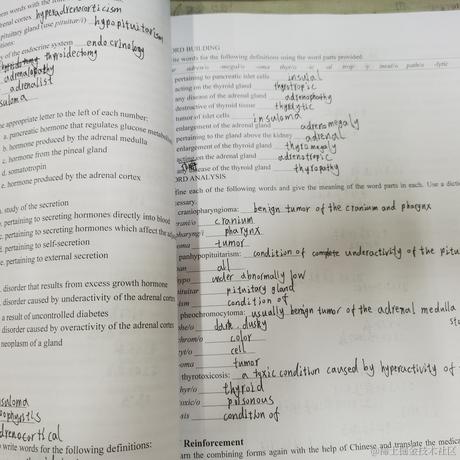 stem words with the
adrenal cortex hyperadrenocorticism
pituitary gland (use pituitar/i) hypopituitarism
itions:
y of the endocrine system endocrinology
thyroidectomy
adrenalopathy
adrenalist
insuloma
he appropriate letter to the left of each number:
a. pancreatic hormone that regulates glucose metabolism
b. hormone produced by the adrenal medulla
c. hormone from the pineal gland
d. somatotropin
e. hormone produced by the adrenal cortex
a. study of the secretion
b. pertaining to secreting hormones directly into blood
c. pertaining to secreting hormones which affect the
d. pertaining to self-secretion
e. pertaining to external secretion
disorder that results from excess growth hormone
disorder caused by underactivity of the adrenal cortex
a result of uncontrolled diabetes
disorder caused by overactivity of the adrenal cortex
neoplasm of a gland
insuloma
adrenocortical
o write words for the following definitions:
WORD BUILDING
write words for the following definitions using the word parts provided:
pertaining to pancreatic islet cells insulal
acting on the thyroid gland thyrotropic
any disease of the adrenal gland adrenopathy
destructive of thyroid tissue thyrolytic
tumor of islet cells insuloma
enlargement of the adrenal gland adrenomegaly
pertaining to the gland above the kidney adrenal
enlargement of the thyroid gland thyromegaly
acting on the adrenal gland adrenotropic
disease of the thyroid gland thyropathy
WORD ANALYSIS
Define each of the following words and give the meaning of the word parts in each. Use a dictionary
necessary.
craniopharyngioma: benign tumor of the cranium and pharynx
crani/o cranium
pharyng/i pharynx
oma tumor
panhypopituitarism: condition of complete underactivity of the pitu
pan all
hypo under abnormally low
pituitar pituitary gland
ism condition of
pheochromocytoma: usually benign tumor of the adrenal medulla
phe/o dark, dusky
chrom/o color
cyt/o cell
oma tumor
thyrotoxicosis: a toxic condition caused by hyperactivity of
thyr/o thyroid
toxic/o poisonous
sis condition of
Reinforcement
Learn the combining forms again with the help of Chinese and translate the medical
@稀土掘金技术社区